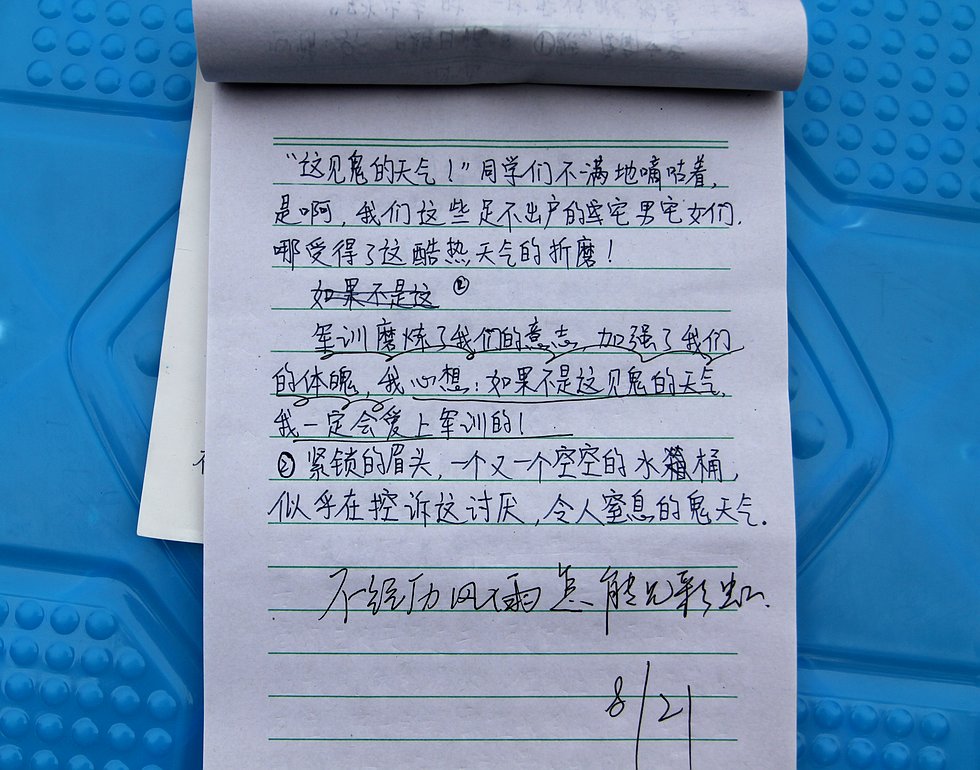 “这见鬼的天气！”同学们不满地嘀咕着，
是啊，我们这些足不出户的宅男宅女们，
哪受得了这酷热天气的折磨！
如果不是这 ②
军训磨炼了我们的意志，加强了我们
的体魄，我心想：如果不是这见鬼的天气，
我一定会爱上军训的！
② 紧锁的眉头，一个又一个空空的水桶，
似乎在控诉这讨厌，令人窒息的鬼天气．
不经历风雨怎能见彩虹．
8/21